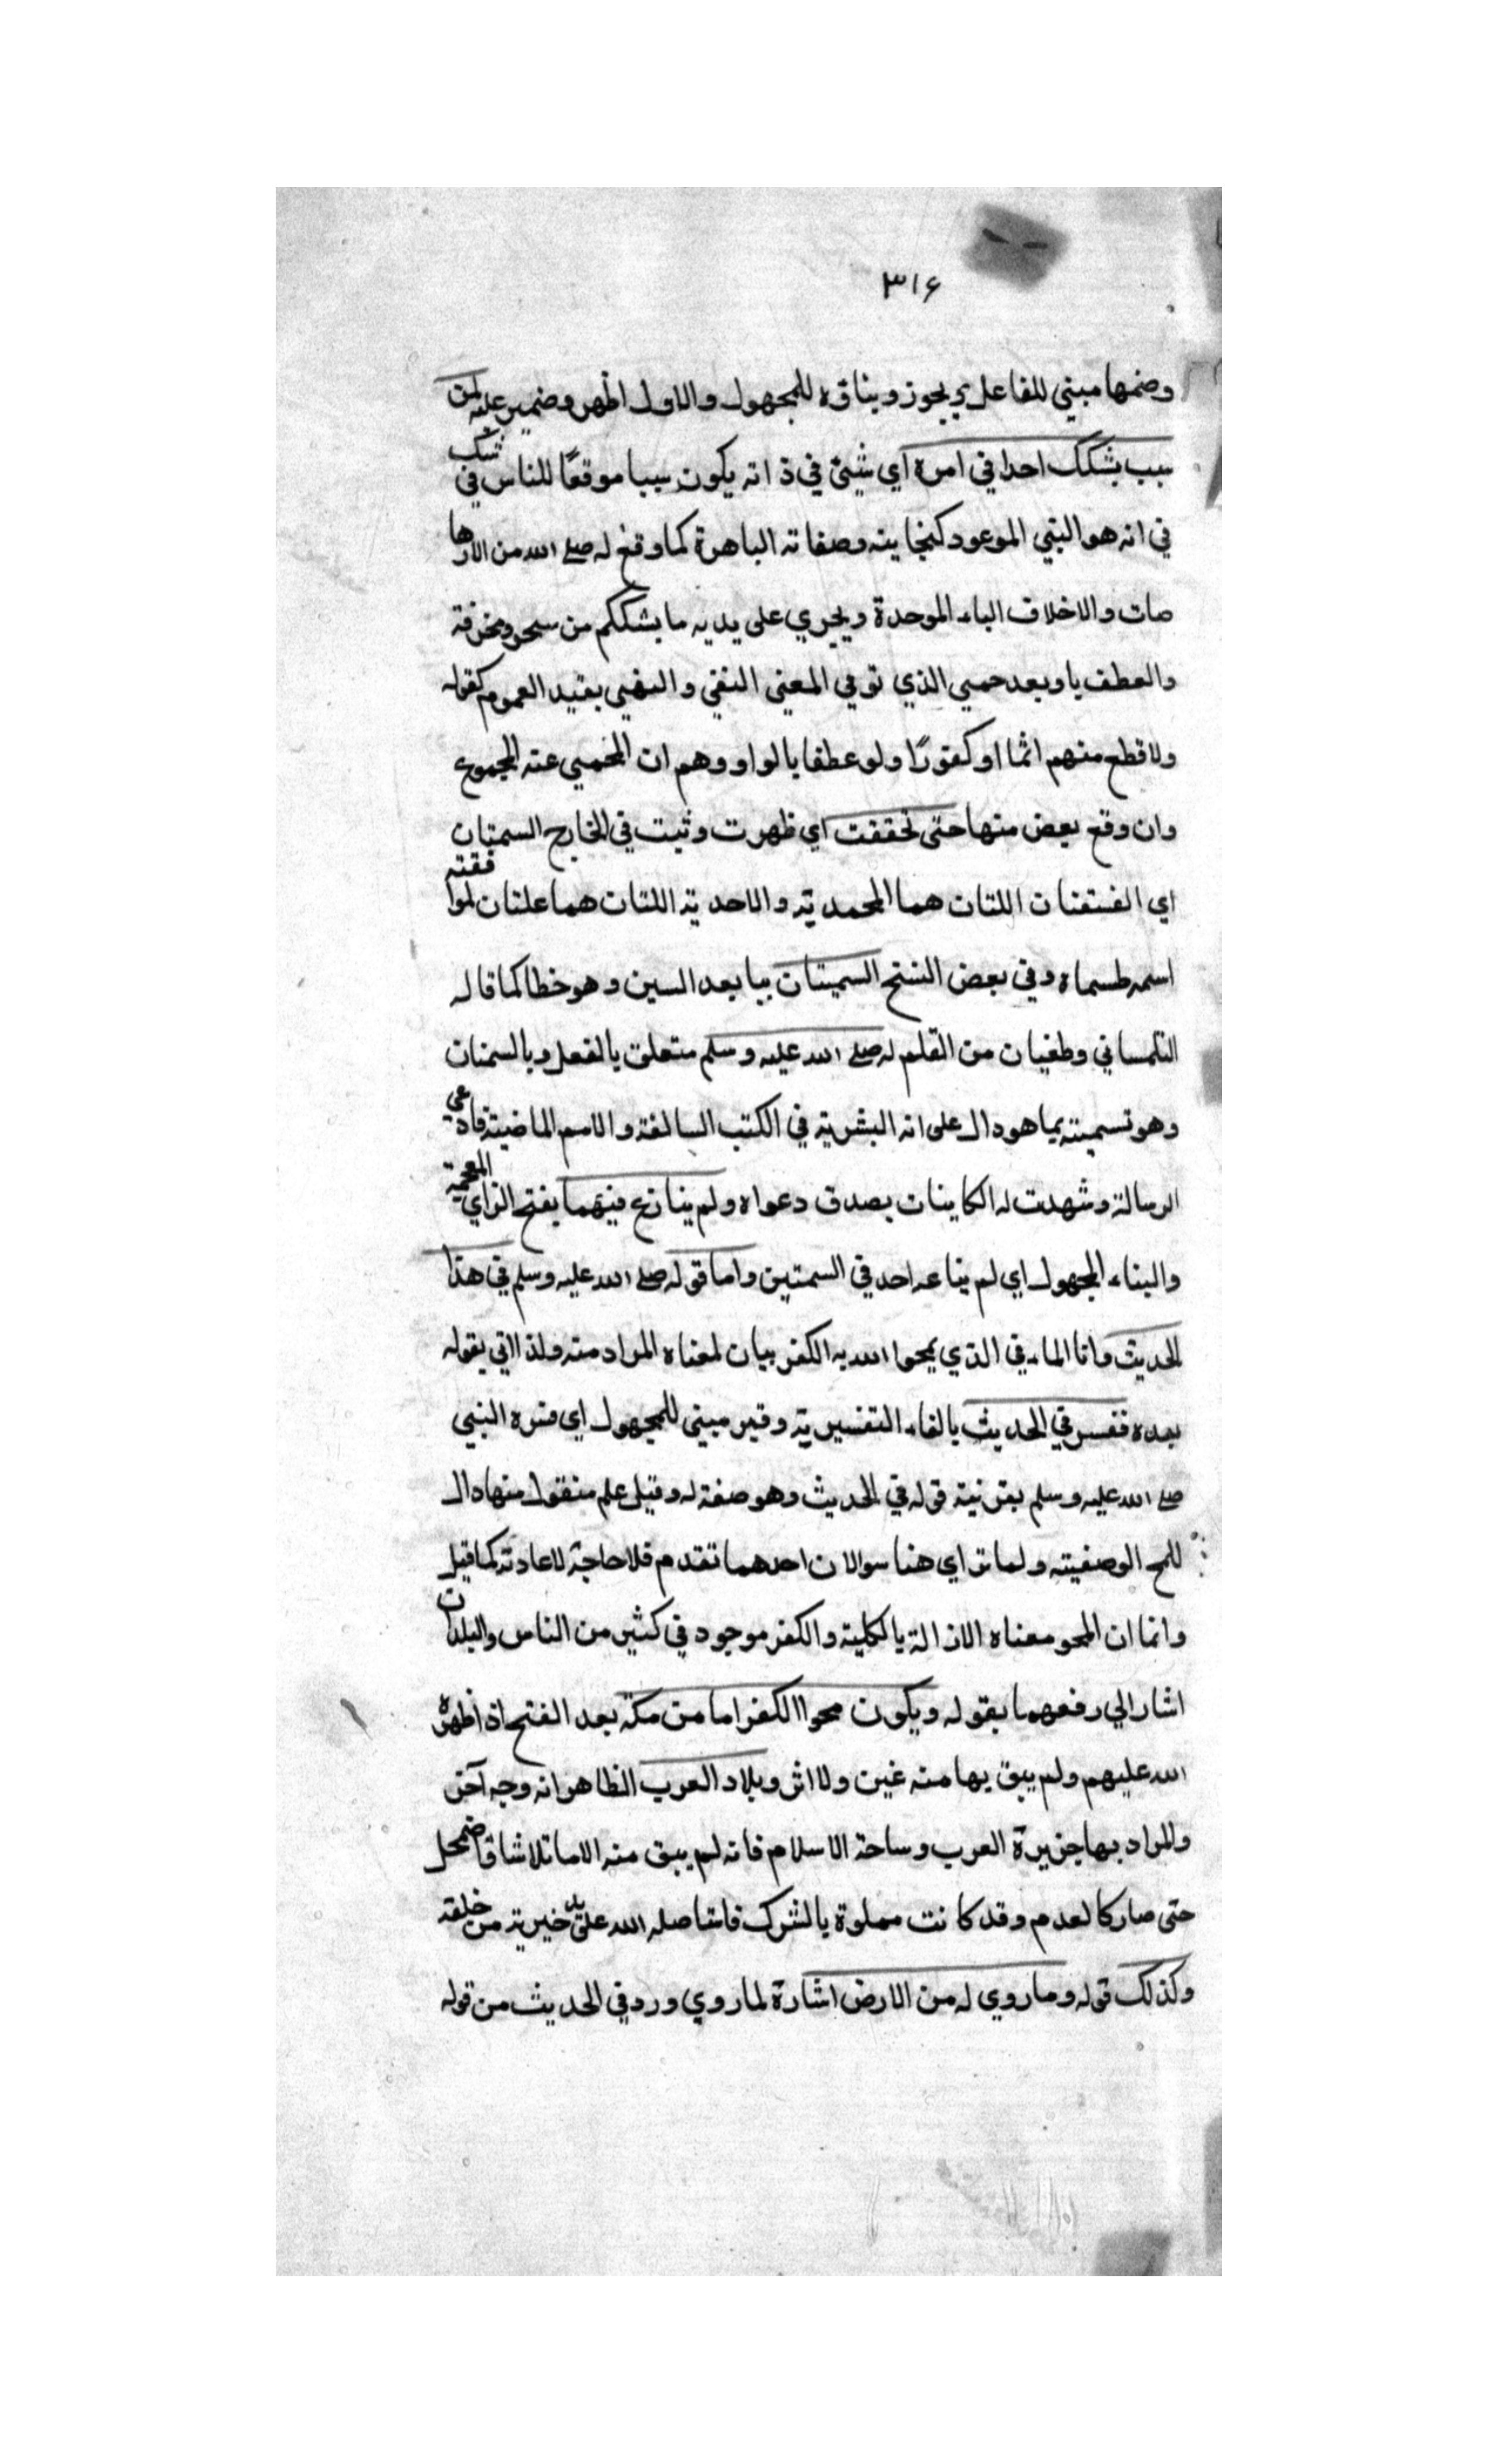 ٣١۶
وضمها مبني للفاعل ويجوز وبناؤه للمجهول والاول اظهر وضمير عليه لمن
سبب يشكك احدا في امره اي شيئ في ذاته يكون سببا موقعًا للناس في شك
في انه هو النبي الموعود كنجابته وصفاته الباهرة كما وقع له صلے الله من الارها
صات والاخلاف الباء الموحدة ويجري على يديه ما يشككم من سحر ومخرفة
والعطف باو بعد حميي الذي توفي المعني النفي والنهيي بقيد العموم كقوله
ولا قطع منهم اثما او كفورًا ولو عطفا بالواو وهم ان المخميي عنه المجموع
وان وقع بعض منها حتى تحققت اي ظهرت وثبت في الخارج السمتان
اي الفستفنات اللتان هما المحمدية والاحدية اللتات هما علتان لموا فقته
اسمه طسماه وفي بعض النسخ السميتات بيا بعد السين وهو خطا كما قاله
التلمساني وطغيان من القلم له صلے الله عليه وسلم متعلق بالفعل وبالسمنات
وهو تسميته بما هو دال على انه البشرية في الكتب السالفة والامم الماضية فادعى
الرسالة وشهدت له الكاينات بصدق دعواه ولم ينازع فيهما بفتح الزاي المعجمة
والبناء المجهول اي لم يناعه احد في السمتين واما قوله صلے الله عليه وسلم في هذا
الحديث وانا الماء في الذي يمحوا الله به الكفر بيان لمعناه المراد منه ولذا اتي بقوله
بعده ففسر في الحديث بالفاء التفسيرية وقير مبني للمجهول اي فسره النبي
صلے الله عليه وسلم بقرنية قوله في الحديث وهو صفة له وقيل علم منقول منها دال
للمح الوصفيته ولما تراي هنا سوالان احدهما تقدم فلا حاجة لاعادته كما قيل
وانما ان المحو معناه الازالة بالكلية والكفر موجود في كثير من الناس والبلدان
اشار الي رفعهما بقوله ويكون محوا الكفر اما من مكة بعد الفتح اذ اظهره
الله عليهم ولم يبق بها منه غين ولا اثر وبلاد العرب الظاهر انه وجه آخر
والمراد بها جزيرة العرب وساحة الاسلام فانه لم يبق منه الا ما تلاشا فاضمحل
حتى صار كالعدم وقد كانت مملوة بالشرك فاستاصله الله على يد خيرية من خلقه
وكذلك قوله وما روي له من الارض اشارة لما روي ورد في الحديث من قوله